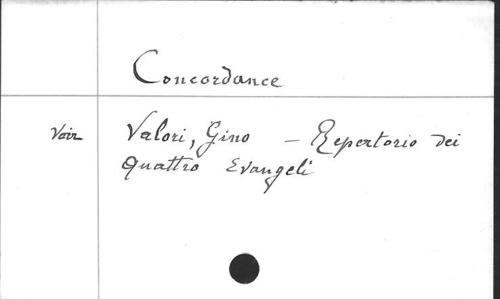 Concordance
Voir Valori, Gino – Repertorio dei
Quattro Evangeli